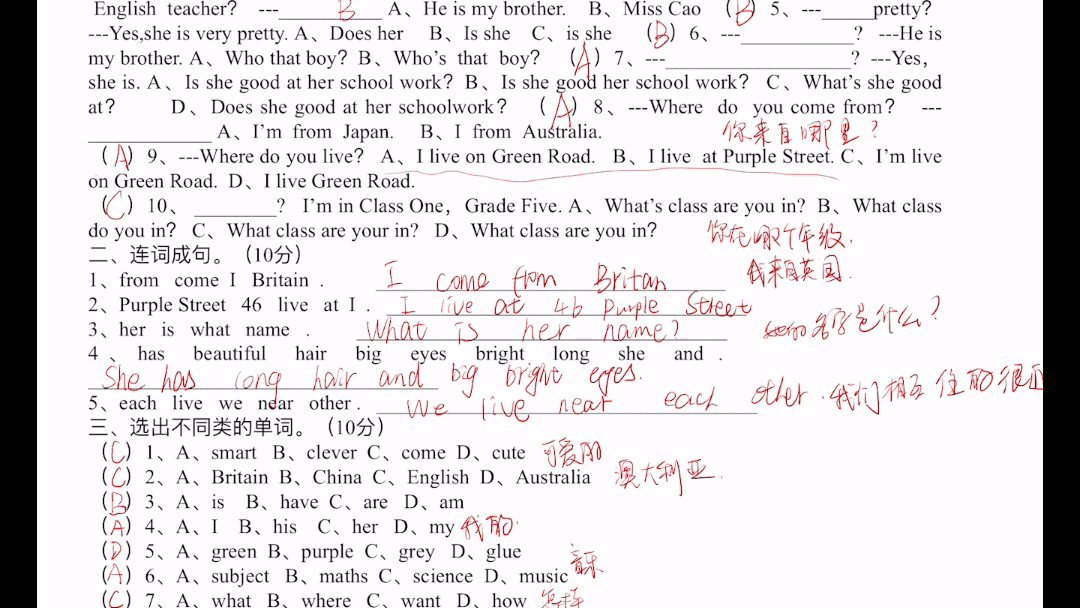 English teacher? ---__________ B A、He is my brother. B、Miss Cao （B）5、---_____pretty?
---Yes,she is very pretty. A、Does her B、Is she C、is she （B）6、---___________? ---He is
my brother. A、Who that boy? B、Who's that boy? （A）7、---__________________? ---Yes,
she is. A、Is she good at her school work? B、Is she good her school work? C、What's she good
at? D、Does she good at her schoolwork? （A）8、---Where do you come from? ---
____________ A、I'm from Japan. B、I from Australia. 你来自哪里？
（A）9、---Where do you live? A、I live on Green Road. B、I live at Purple Street. C、I'm live
on Green Road. D、I live Green Road.
（C）10、________? I'm in Class One，Grade Five. A、What's class are you in? B、What class
do you in? C、What class are your in? D、What class are you in? 你在哪个年级.
二、连词成句。（10分） 我来自英国.
1、from come I Britain . I come from Britan
2、Purple Street 46 live at I . I live at 46 purple Street
3、her is what name . What is her name? 她的名字是什么？
4、has beautiful hair big eyes bright long she and .
She has long hair and big bright eyes.
5、each live we near other . We live near each other. 我们相互住的很近
三、选出不同类的单词。（10分）
（C）1、A、smart B、clever C、come D、cute 可爱的
（C）2、A、Britain B、China C、English D、Australia 澳大利亚.
（B）3、A、is B、have C、are D、am
（A）4、A、I B、his C、her D、my 我的
（D）5、A、green B、purple C、grey D、glue
（A）6、A、subject B、maths C、science D、music 音乐
（C）7、A、what B、where C、want D、how 怎样